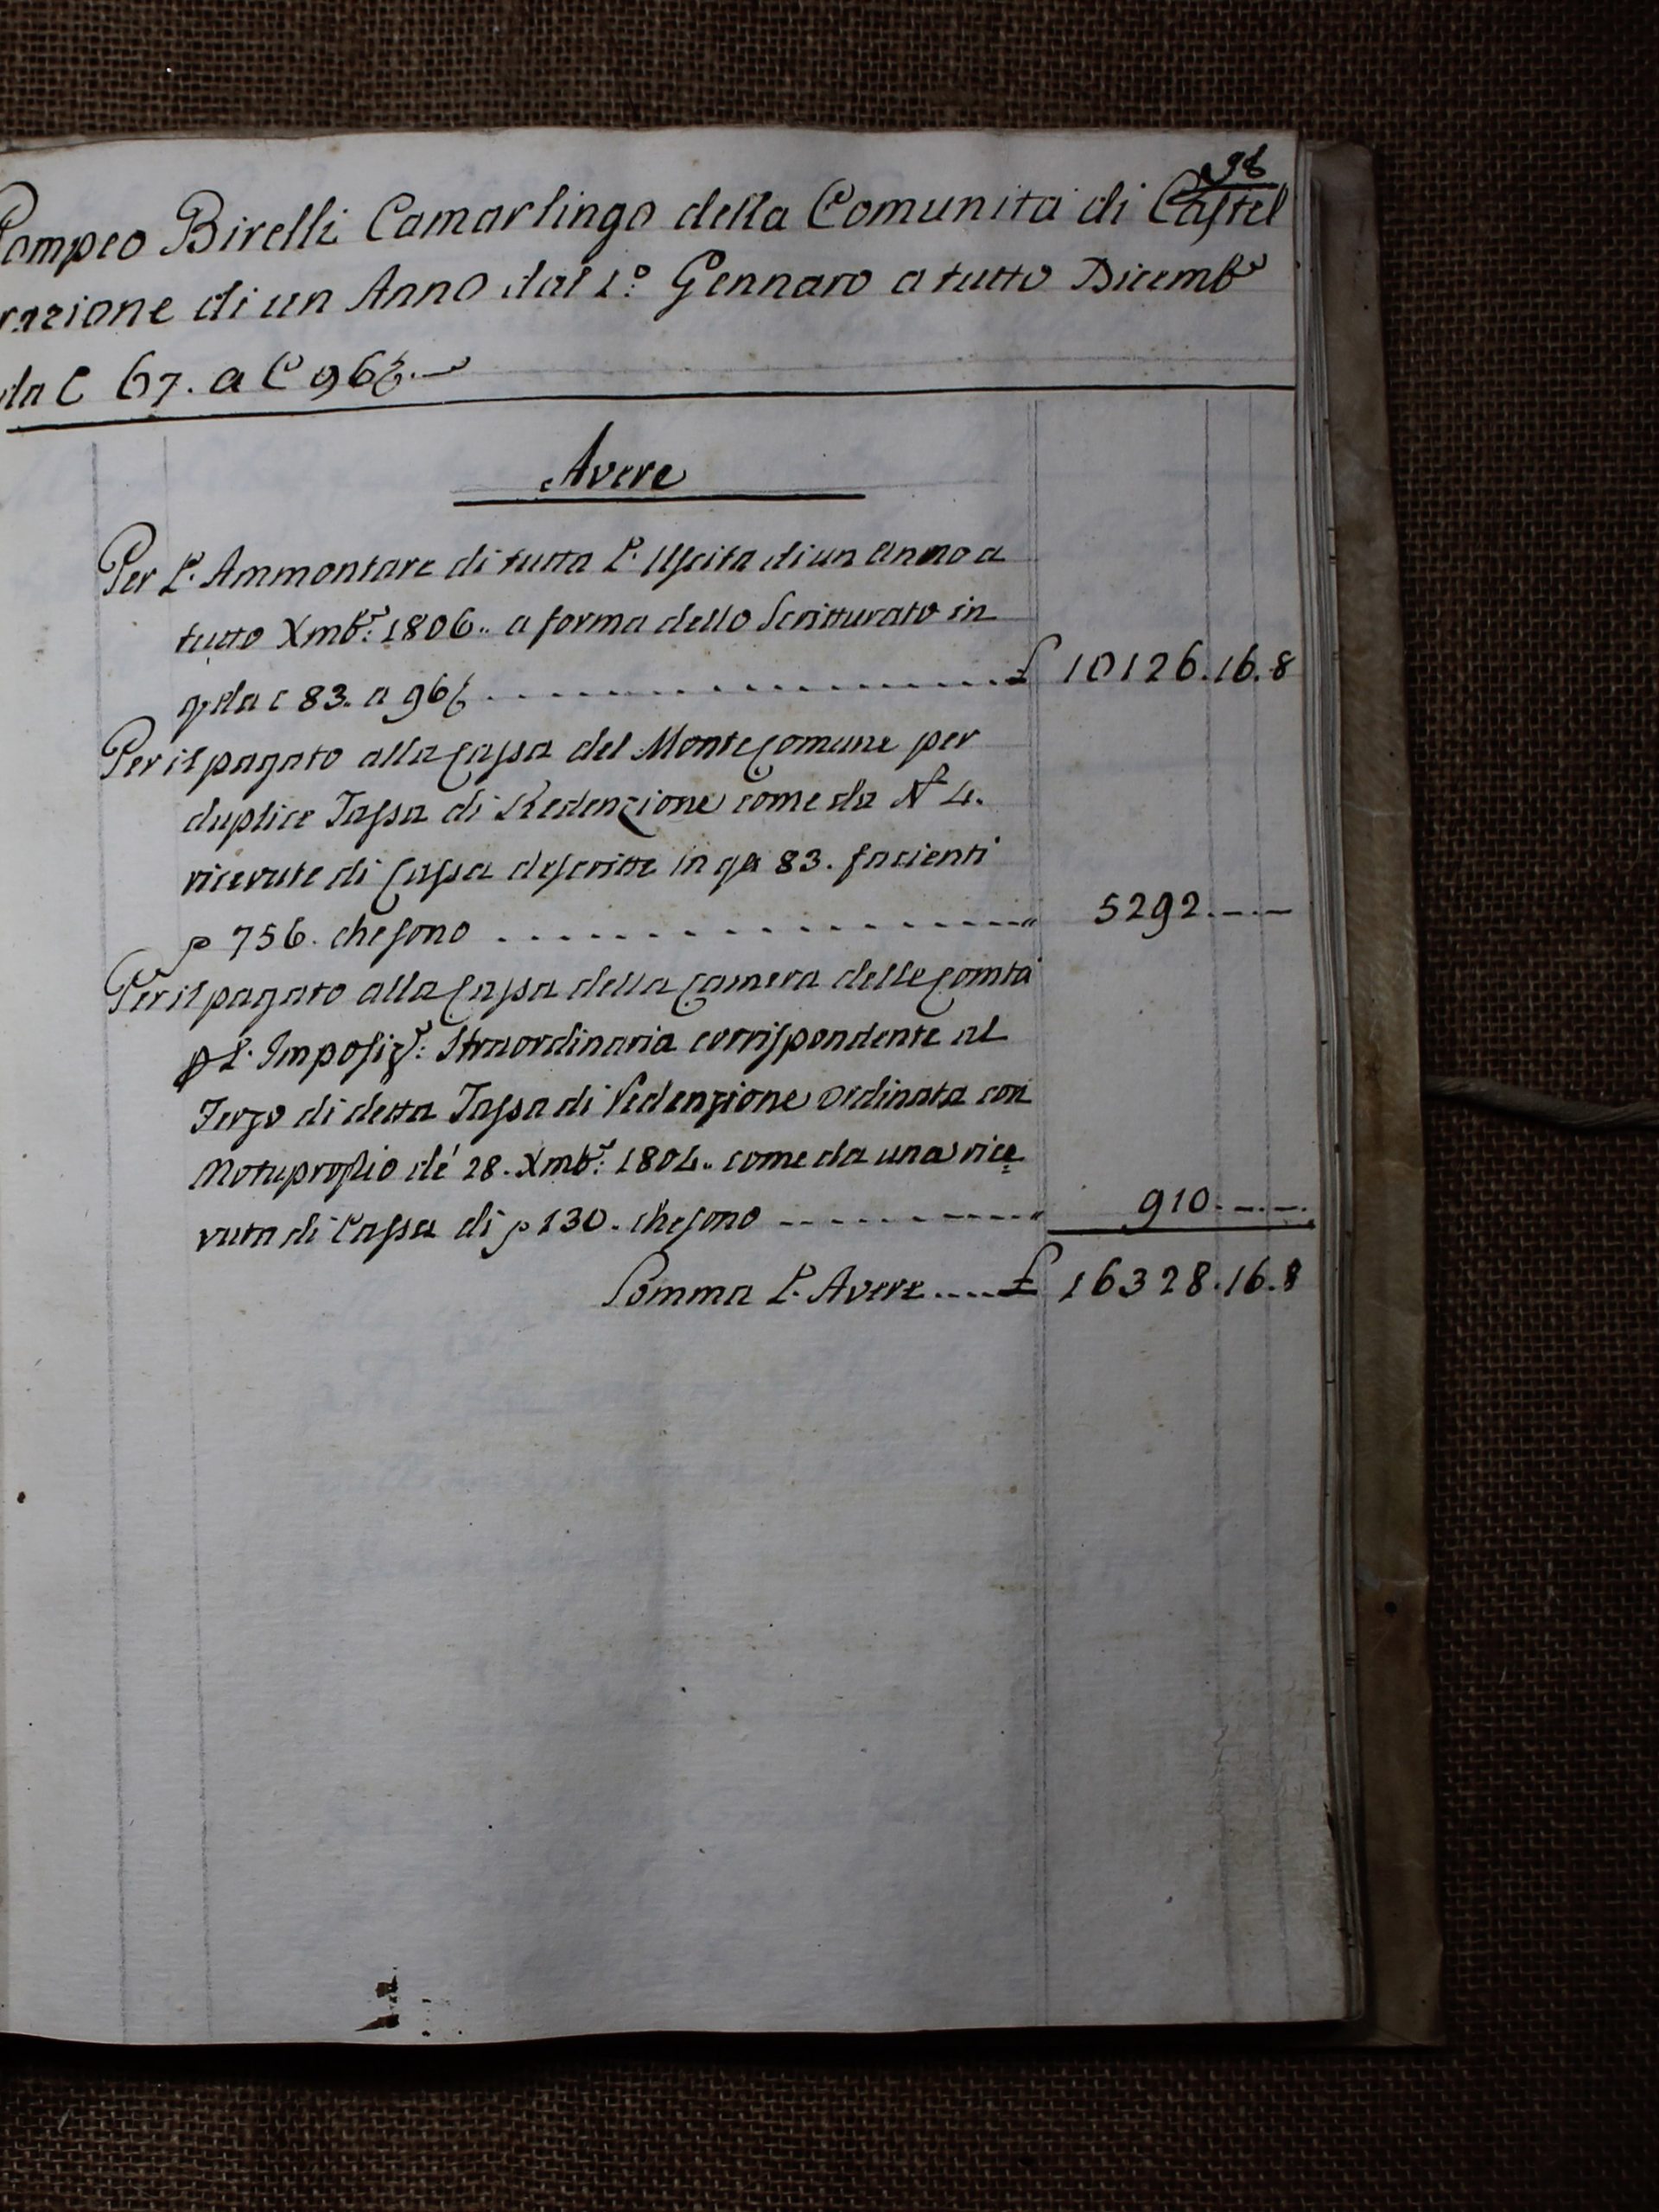 98
Pompeo Birelli Camarlingo della Comunità di Castel
razione di un Anno dal 1.° Gennaro a tutto Dicembr
da C 67. a C 96
Avere
Per l'Ammontare di tutta l'Uscita di un anno a
tutto Xmbr: 1806. a forma dello Scritturato in
da c 83. a 96 £ 10126.16.8
Per il pagato alla Cassa del Monte Comune per
duplice Tassa di Redenzione come da N° 4.
ricevute di Cassa descritte in 83. facienti
p 756. che sono " 5292.-.-
Per il pagato alla Cassa della Camera delle Comtà
p l'Imposiz: Straordinaria corrispondente al
Terzo di detta Tassa di Redenzione ordinata con
Motuproprio de' 28. Xmbr: 1804. come da una rice
vuta di Cassa di p 130. che sono " 910.-.-
Somma l'Avere £ 16328.16.8